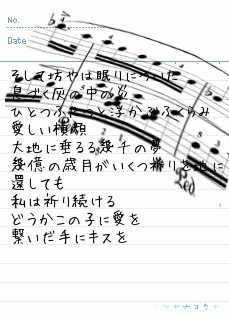 No.
Date
そして坊やは眠りについた
息づく灰の中の炎
ひとつふたつと浮かぶふくらみ
愛しい横顔
大地に垂るる幾千の夢
幾億の歳月がいくつ祈りを地に
還しても
私は祈り続ける
どうかこの子に愛を
繋いだ手にキスを